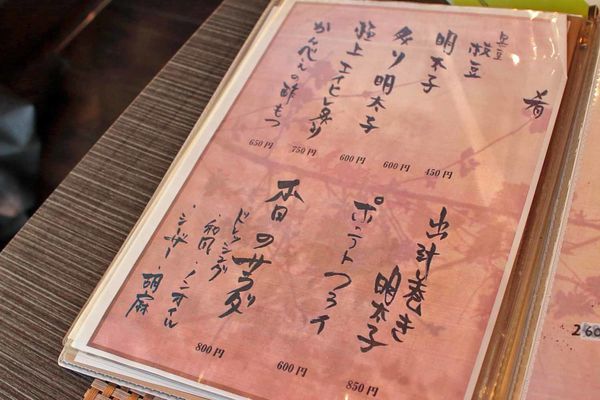 肴
黒豆
枝豆
450円
明太子
600円
炙り明太子
600円
極上エイヒレ炙り
750円
かんべえの酢もつ
650円
出汁巻き
明太子
850円
ポテトフライ
600円
本日のサラダ
800円
ドレッシング
・和風・ノンオイル
・シーザー・胡麻
260